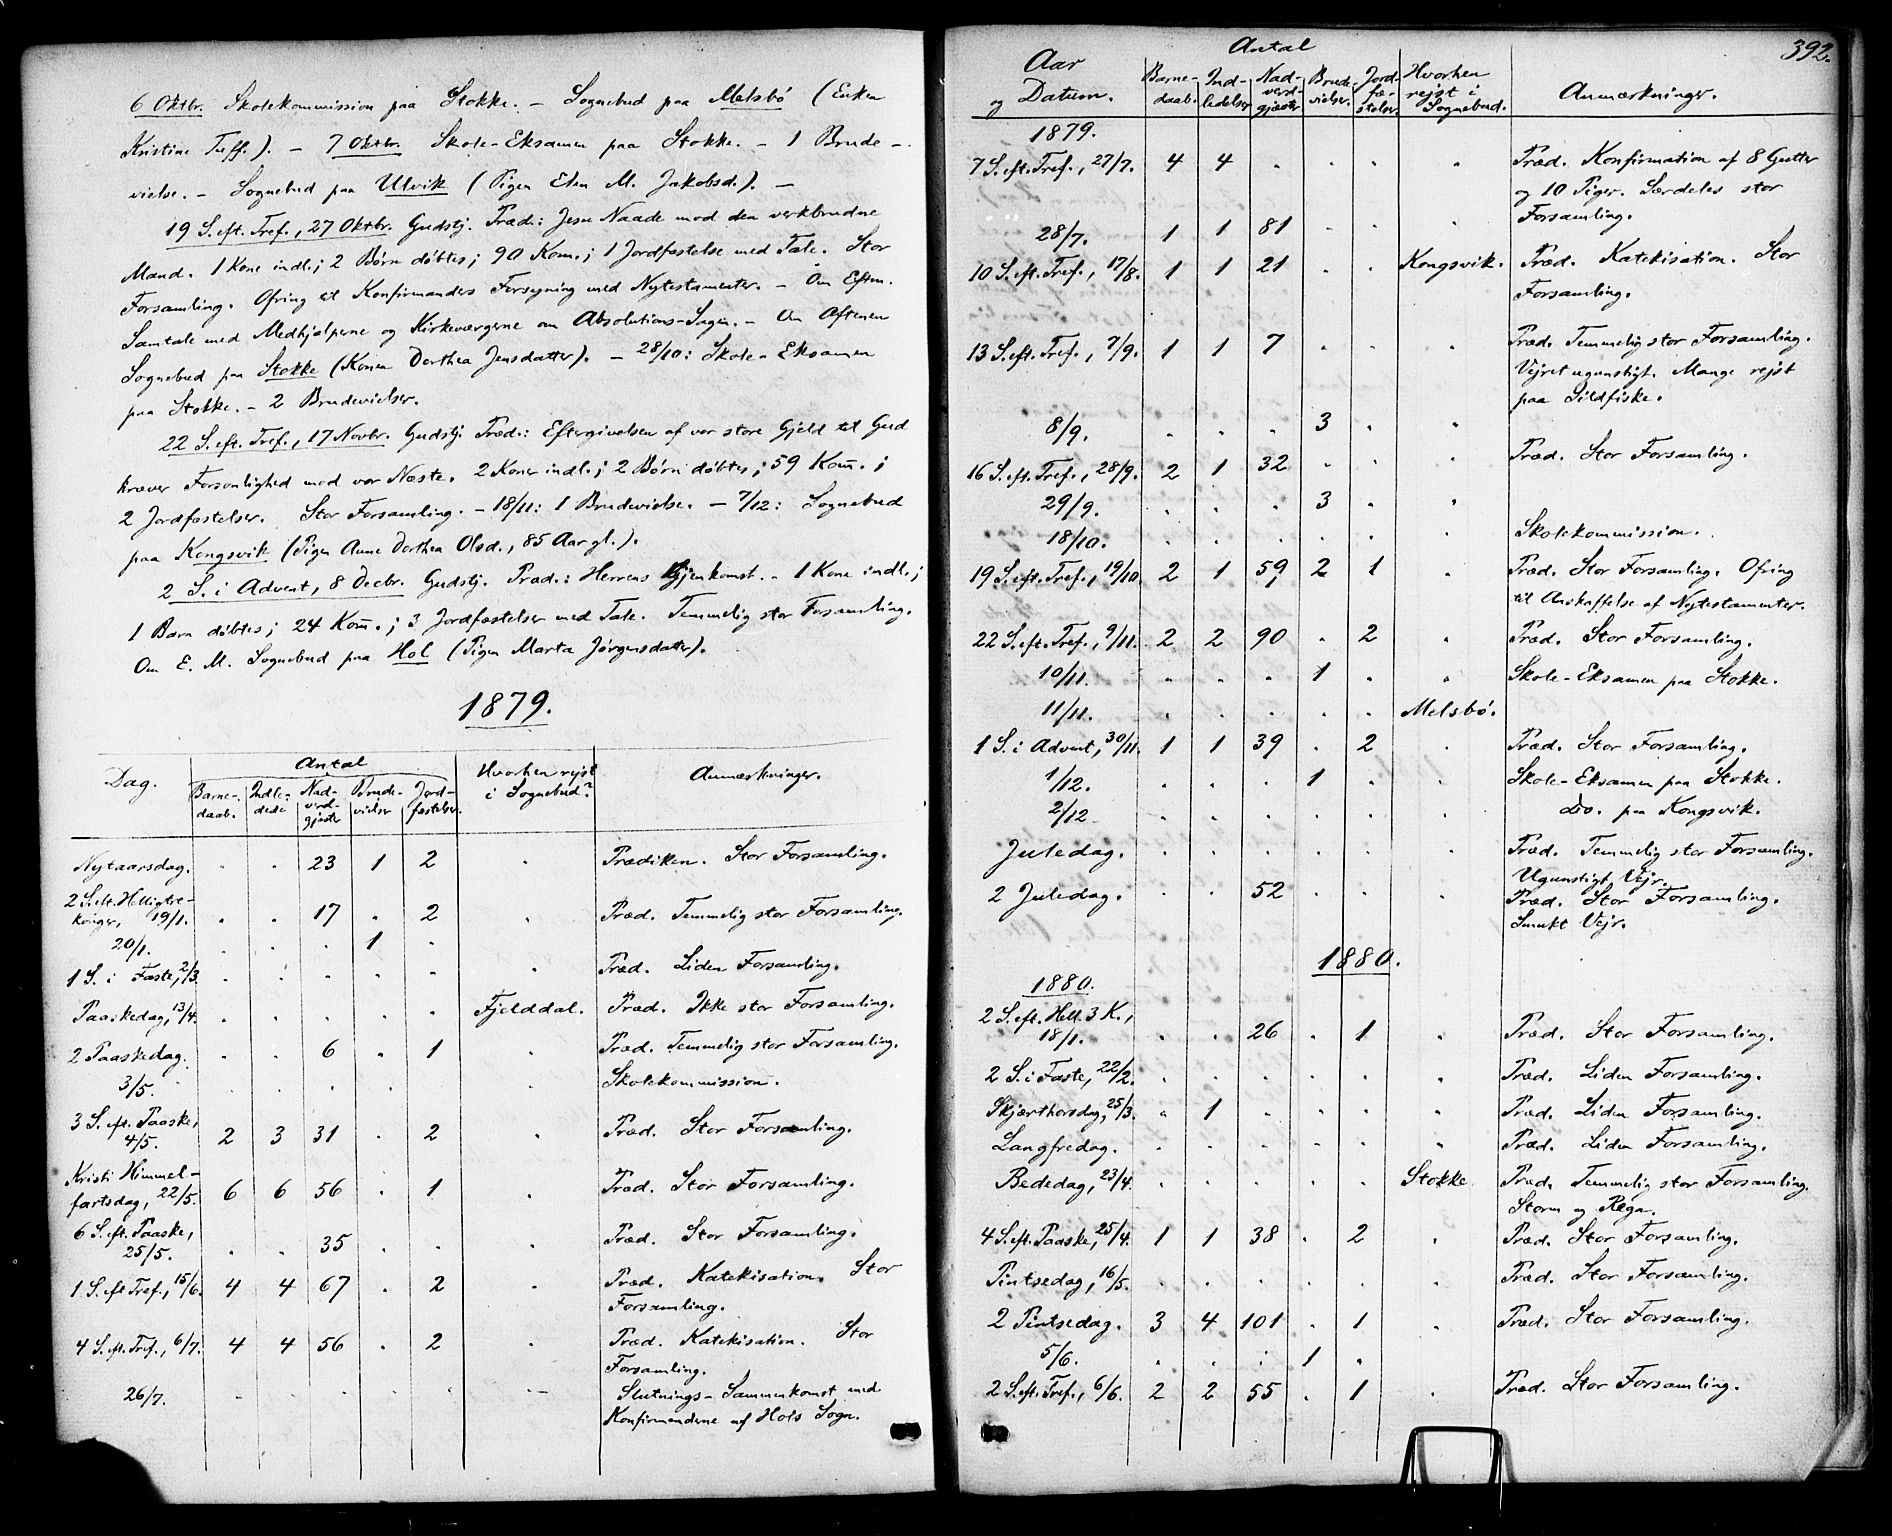 6 Oktbr. Skolekommission paa Stokke. — Sognebud paa Melsbö (Enken
Kristine Teff.). — 7 Oktbr. Skole-Eksamen paa Stokke. — 1 Brude-
vielse. — Sognebud paa Ulvik (Pigen Elen M. Jakobsd.). —
19 S. eft. Tref., 27 Oktbr. Gudstj. Præd.: Jesu Naade mod den verkbrudne
Mand. 1 Kone indl.; 2 Børn døbtes; 90 Kom.; 1 Jordfæstelse med Tale. Stor
Forsamling. Ofring til Konfirmanders Forsyning med Nytestamenter. — Om Eftm.
Samtale med Medhjælperne og Kirkeværgerne om Absolutions-Sagen. — Om Aftenen
Sognebud paa Stokke (Konen Dorthea Jensdatter). — 28/10: Skole-Eksamen
paa Stokke. — 2 Brudevielser.
22 S. eft. Tref., 17 Novbr. Gudstj. Præd.: Eftergivelsen af vor store Gjeld til Gud
kræver Forsonlighed mod vor Næste. 2 Koner indl.; 2 Børn døbtes; 59 Kom.;
2 Jordfæstelser. Stor Forsamling. — 18/11: 1 Brudevielse. — 7/12: Sognebud
paa Kongsvik (Pigen Anne Dorthea Olsd., 85 Aar gl.).
2 S. i Advent, 8 Decbr. Gudstj. Præd.: Herrens Gjenkomst. — 1 Kone indl.;
1 Barn døbtes; 24 Kom.; 3 Jordfæstelser med Tale. Temmelig stor Forsamling.
Om E. M. Sognebud paa Hol (Pigen Marta Jørgensdatter).
1879.
Dag. Antal Hvorhen rejst i Sognebud? Anmærkninger.
Barne-daab. Indle-dede Nad-verd-gjester Brude-vielser Jord-fæstelser.
Nytaarsdag. . . 23 1 2 . Prædiken. Stor Forsamling.
2 S. eft. Helligtre-
konger, 19/1. . . 17 . 2 . Præd. Temmelig stor Forsamling.
20/1. . . . 1 .
1 S. i Faste, 2/3 . . . . . . Præd. Liden Forsamling.
Paaskedag, 13/4. . . . . . Fjelddal. Præd. Ikke stor Forsamling.
2 Paaskedag. . . 6 . 1 . Præd. Temmelig stor Forsamling.
3/5. . . . . . . Skolekommission.
3 S. eft. Paaske,
4/5. 2 3 31 . 2 . Præd. Stor Forsamling.
Kristi Himmel-
fartsdag, 22/5. 6 6 56 . 1 . Præd. Stor Forsamling.
6 S. eft. Paaske,
25/5. . . 35 . . . Præd. Stor Forsamling.
1 S. eft Tref., 15/6. 4 4 67 . 2 . Præd. Katekisation. Stor
Forsamling.
4 S. eft. Tref., 6/7. 4 4 56 . 2 . Præd. Katekisation. Stor
Forsamling.
26/7. . . . . . . Slutnings-Sammenkomst med
Konfirmanderne af Hols Sogn.
392.
Aar og Datum. Antal Hvorhen rejst i Sognebud. Anmærkninger.
Barne-daab. Ind-ledelser Nad-verd-gjæster Brude-vielser. Jord-fæ-stelser.
1879.
7 S. eft. Tref., 27/7. 4 4 . . . . Præd. Konfirmation af 8 Gutter
og 10 Piger. Særdeles stor
Forsamling.
28/7. 1 1 81 . . .
10 S. eft. Tref., 17/8. 1 1 21 . . Kongsvik. Præd. Katekisation. Stor
Forsamling.
13 S. eft. Tref., 7/9. 1 1 7 . . . Præd. Temmelig stor Forsamling.
Vejret ugunstigt. Mange rejst
paa Sildfiske.
8/9. . . . 3 . .
16 S. eft. Tref., 28/9. 2 1 32 . . . Præd. Stor Forsamling.
29/9. . . . 3 . .
18/10. . . . . . . Skolekommission.
19 S. eft. Tref., 19/10. 2 1 59 2 1 . Præd. Stor Forsamling. Ofring
til Anskaffelse af Nytestamenter.
22 S. eft. Tref., 9/11. 2 2 90 . 2 . Præd. Stor Forsamling.
10/11. . . . 1 . . Skole-Eksamen paa Stokke.
11/11. . . . . . Melsbö.
1 S. i Advent, 30/11. 1 1 39 . 2 . Præd. Stor Forsamling.
1/12. . . . 1 . . Skole-Eksamen paa Stokke.
2/12 . . . . . . do. paa Kongsvik.
Juledag. . . . . . . Præd. Temmelig stor Forsamling.
Ugunstigt Vejr.
2 Juledag. . . 52 . . . Præd. Stor Forsamling.
Smukt Vejr.
1880.
1880.
2 S. eft. Hell. 3 K.,
18/1. . . 26 . 1 . Præd. Stor Forsamling.
2 S. i Faste, 22/2. . . . . . . Præd. Liden Forsamling.
Skjærthorsdag, 25/3. . 1 . . . . Præd. Liden Forsamling.
Langfredag. . . . . . . Præd. Liden Forsamling.
Bededag, 23/4. . . . . . Stokke Præd. Temmelig stor Forsamling.
Storm og Regn.
4 S. eft. Paaske, 25/4. 1 1 38 . 2 . Præd. Stor Forsamling.
Pintsedag, 16/5. . . . . . . Præd. Stor Forsamling.
2 Pintsedag. 3 4 101 . 1 . Præd. Stor Forsamling.
5/6. . . . 1 .
2 S. eft. Tref., 6/6. 2 2 55 . 1 . Præd. Stor Forsamling.